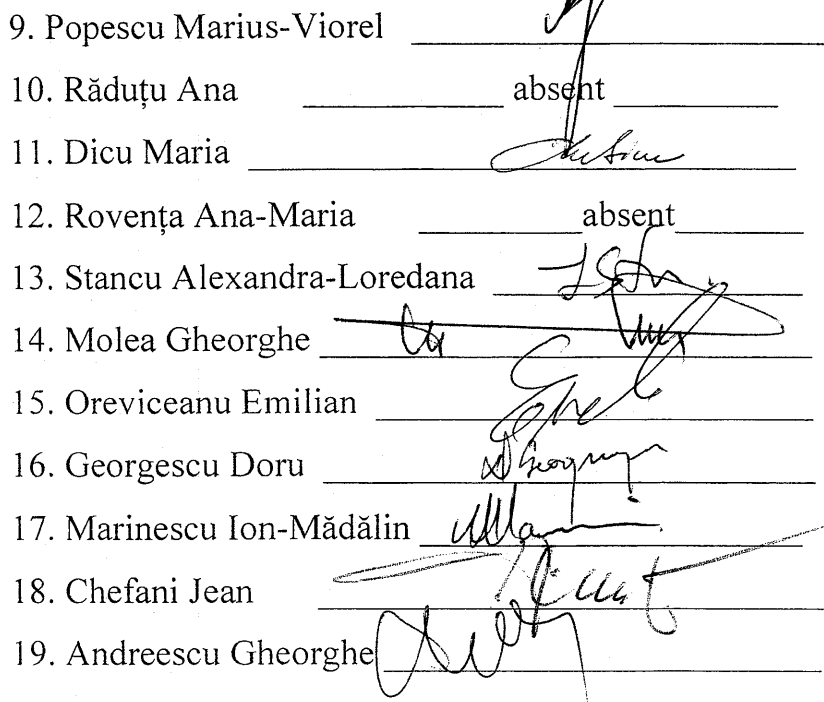 9. Popescu Marius-Viorel
10. Răduțu Ana absent
11. Dicu Maria
12. Rovența Ana-Maria absent
13. Stancu Alexandra-Loredana
14. Molea Gheorghe
15. Oreviceanu Emilian
16. Georgescu Doru
17. Marinescu Ion-Mădălin
18. Chefani Jean
19. Andreescu Gheorghe